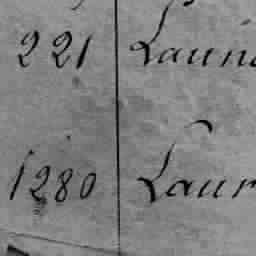 221 Launa
1280 Laur